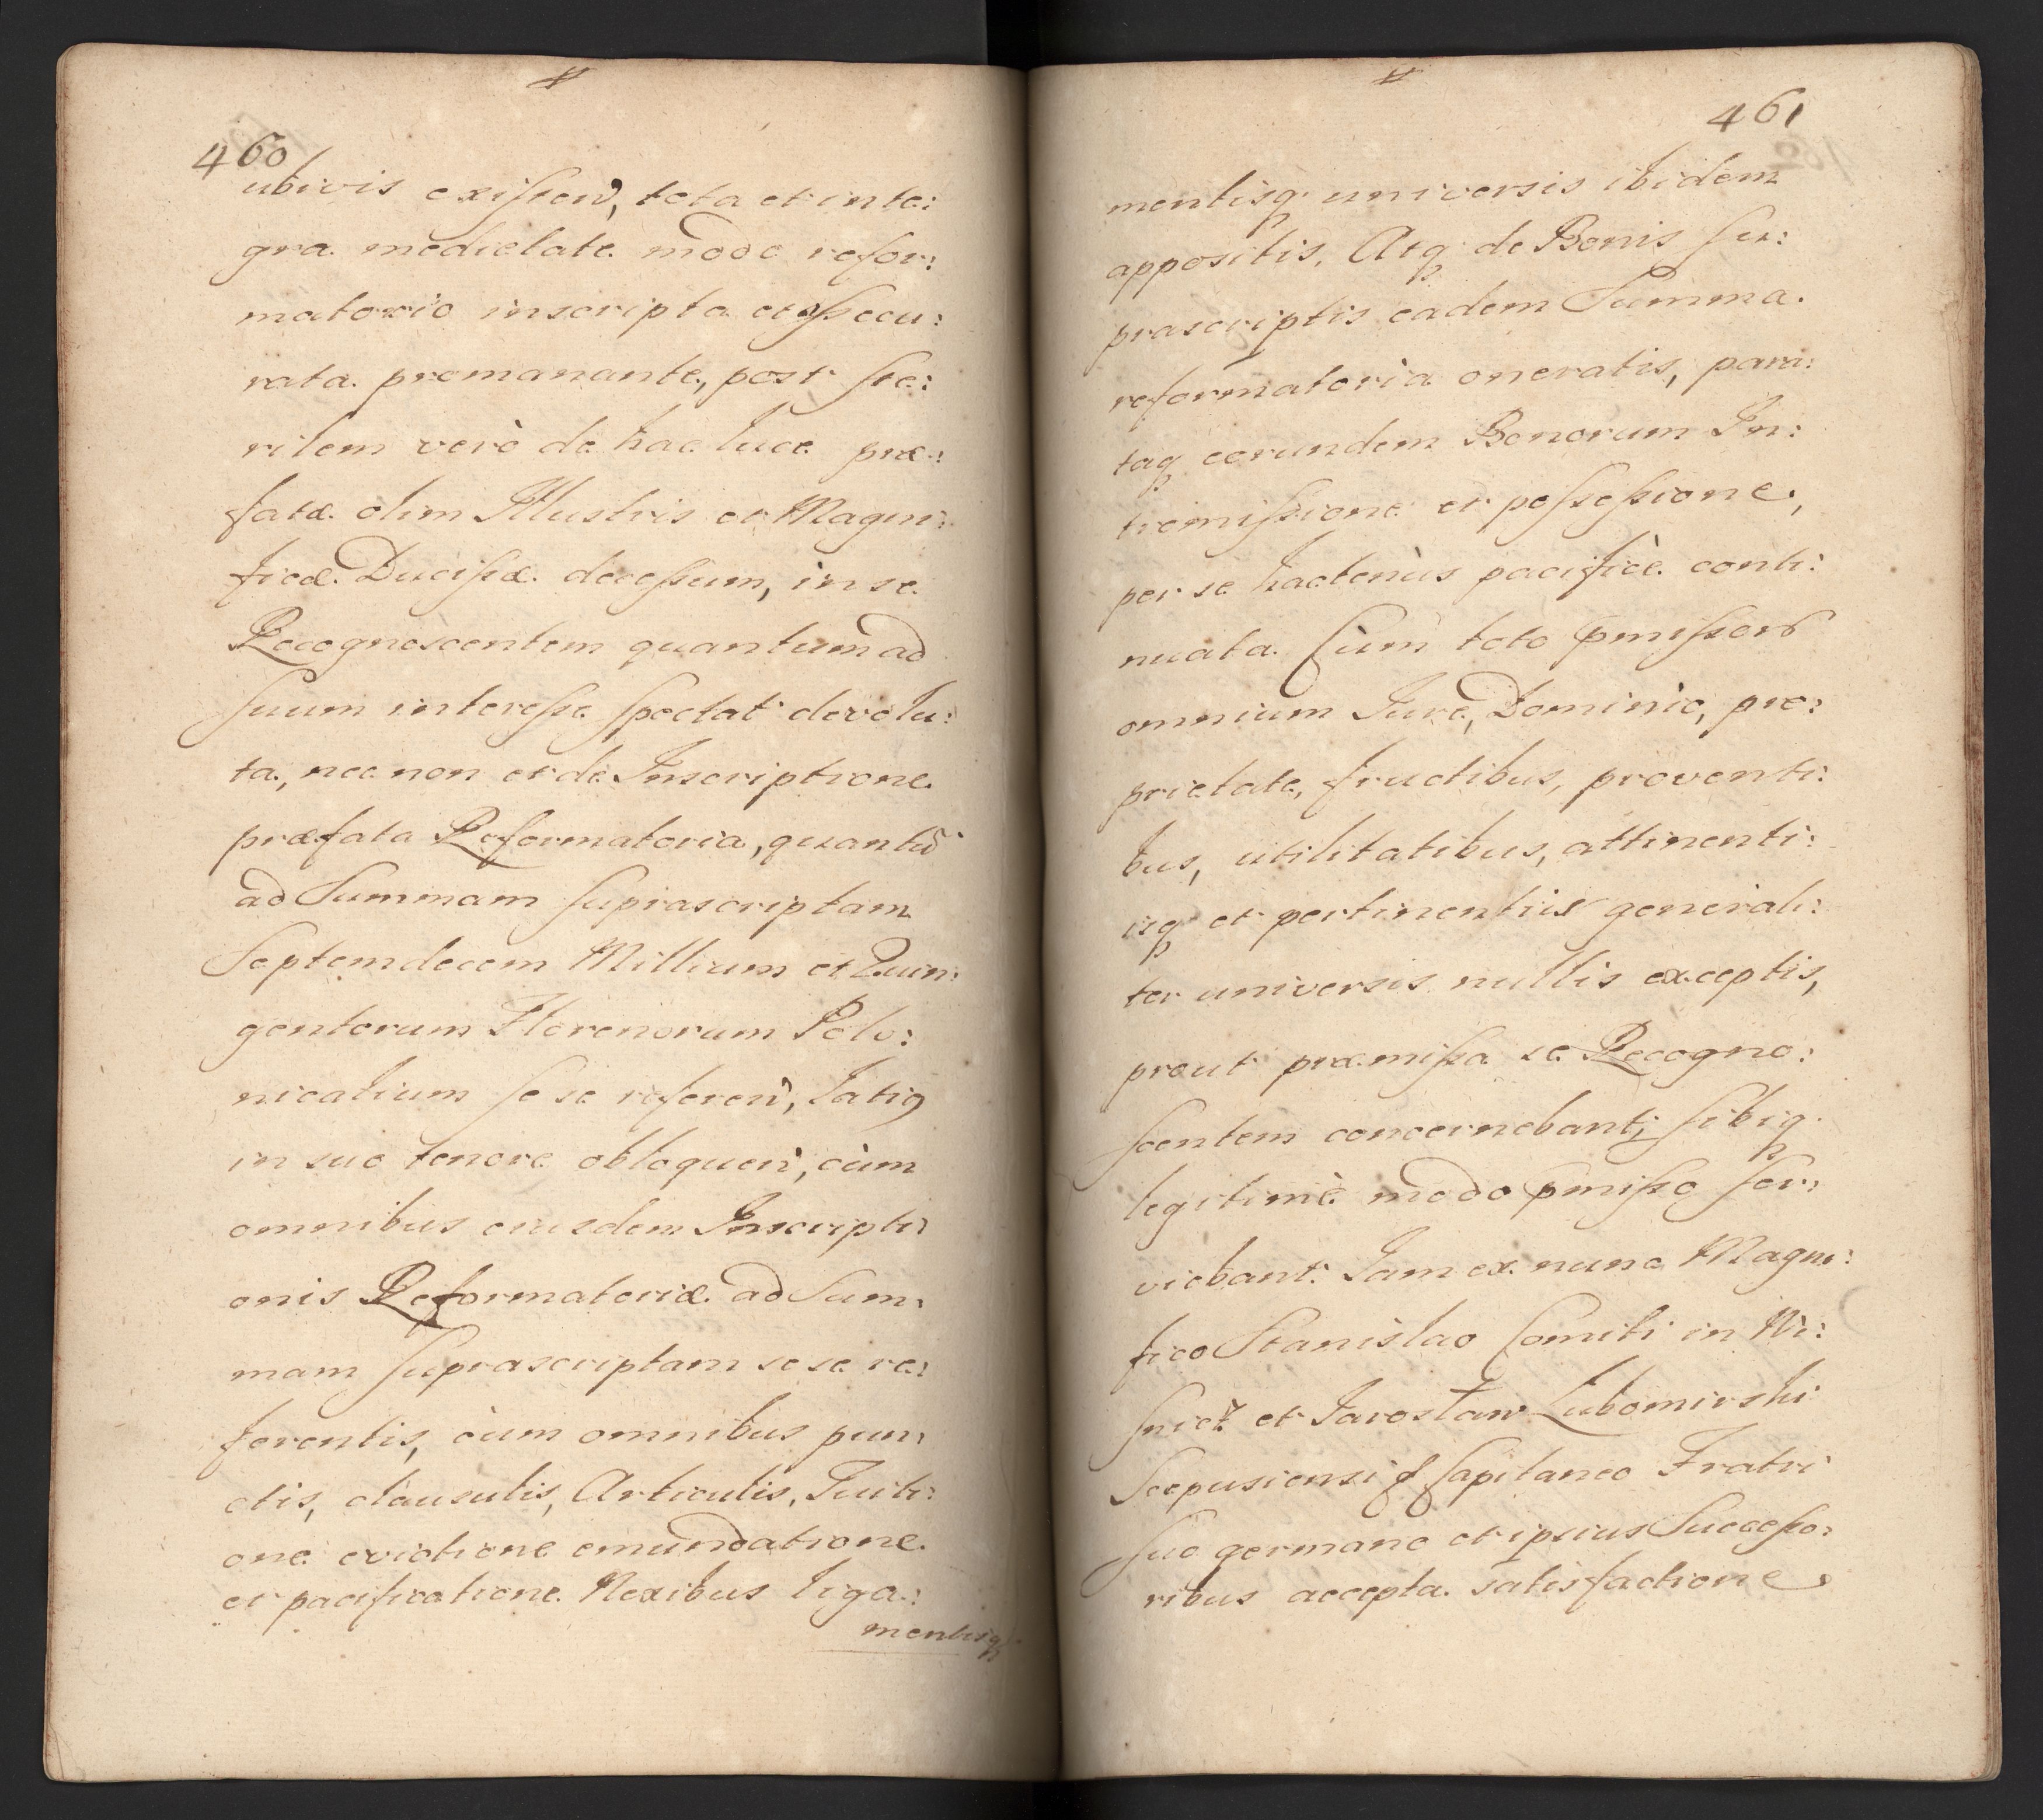 460
ubivis existen, tota et inte:
gra medietate modo refor:
matorio inscripta et assecu:
rata promanante, post ste:
rilem verò de hac luce præ:
fatæ olim Illustris et Magni:
ficæ Ducissæ decessum, in se
Recognoscentem quantum ad
suum interesse spectat devolu:
ta, nec non et de Inscriptione
præfata Reformatoria, quantū
ad Summam suprascriptam
Septemdecem Millium et Quin:
gentorum Florenorum Polo:
nicalium se se referen, latiq
in suo tenore obloquen, cùm
omnibus eiusdem Inscripti:
onis Reformatoriæ ad Sum:
mam suprascriptam se se re:
ferentis, cùm omnibus pun:
ctis, clausulis, Articulis, Tuiti:
one evictione emundatione
et pacificatione Nexibus liga:
mentisq
461
mentisq universis ibidem
appositis, Atq de Bonis su:
prascriptis eadem Summa
reformatoria oneratis, pari:
taq eorundem Bonorum In:
tromissione et possessione,
per se hactenùs pacificè conti:
nuata. Cùm toto pmissor
omnium Iure, Dominio, pro:
prietate, fructibus, proventi:
bus, utilitatibus, attinenti:
isq et pertinentiis generali:
ter universis nullis exceptis,
prout præmissa se Recogno:
scentem concernebant, sibiq
legitimè modo pmisso ser:
viebant. Iam ex nunc Magni:
fico Stanislao Comiti in Wi:
snicz et Jarosław Lubomirski
Scepusiensi Capitaneo Fratri
suo germano et ipsius Successo:
ribus accepta satisfactione